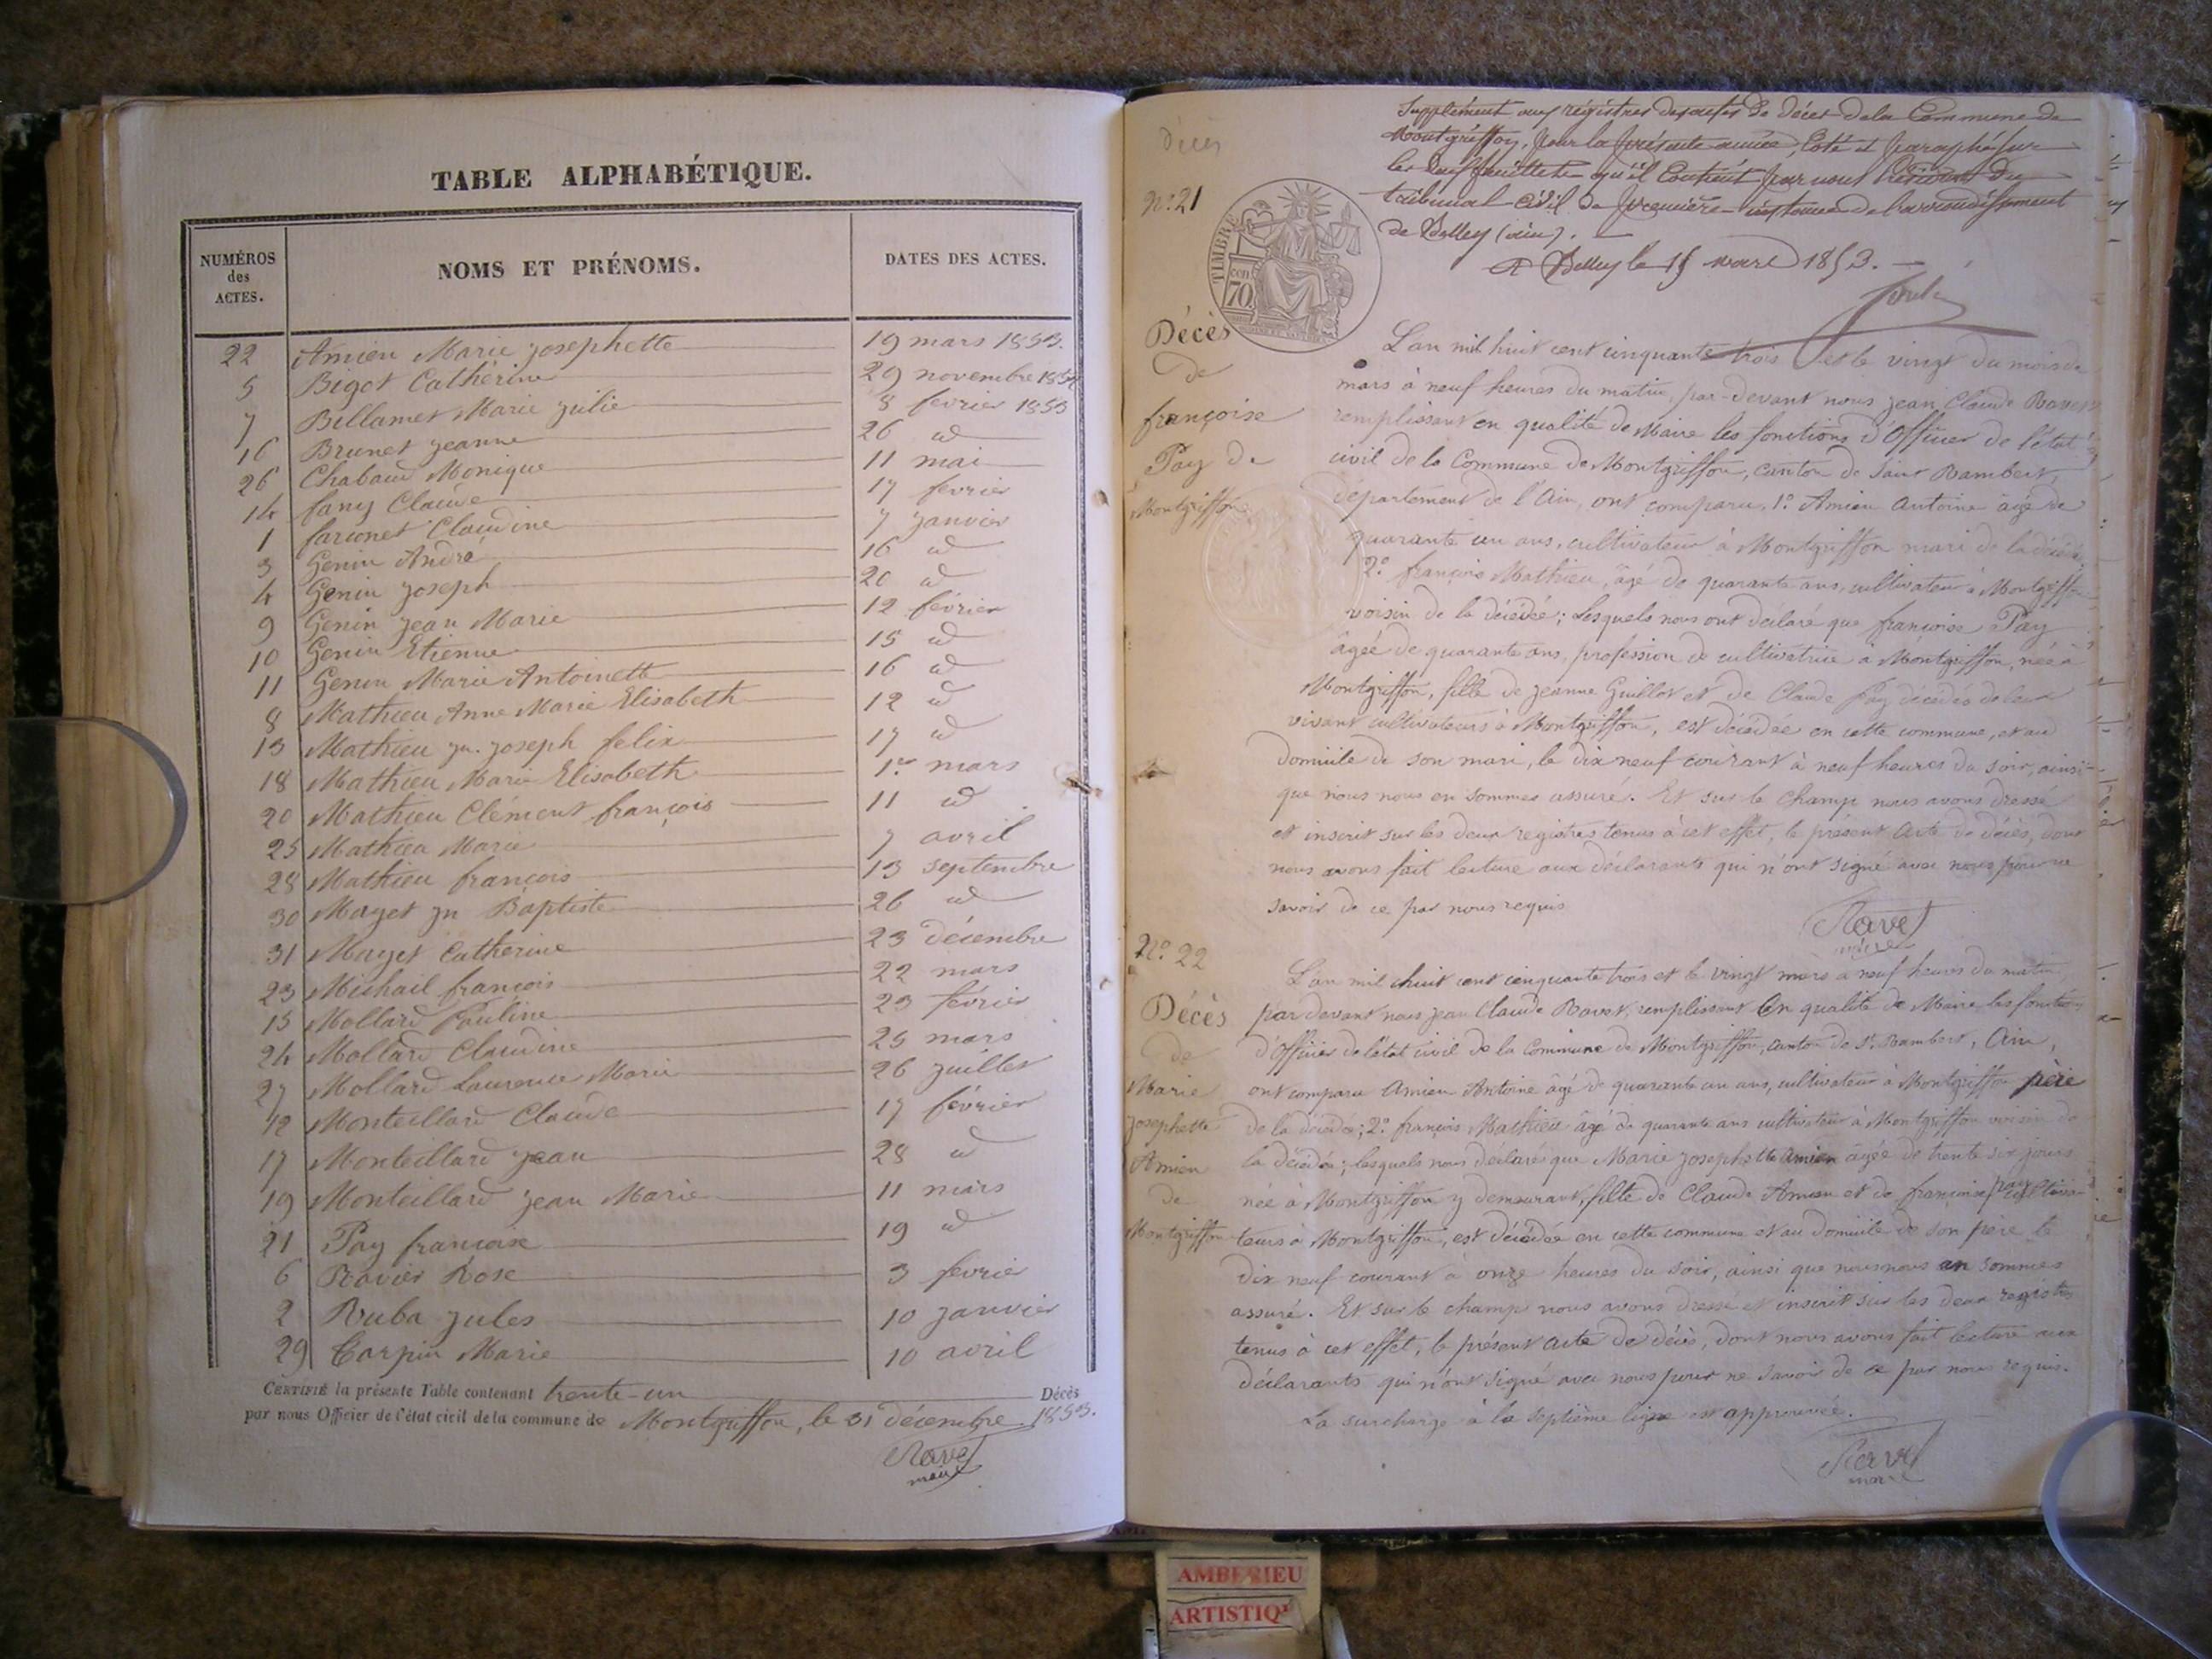 TABLE ALPHABÉTIQUE.
NUMÉROS des ACTES. NOMS ET PRÉNOMS. DATES DES ACTES.
22 Amien Marie Josephette 19 mars 1853.
5 Bigot Catherine 29 novembre
7 Billamet Marie Julie 8 février 1853
16 Brunet Jeanne 26 id
26 Chabaud Monique 11 mai
14 fany Claude 17 février
1 farionet Claudine 7 janvier
3 Genin André 16 id
4 Genin Joseph 20 id
9 Genin Jean Marie 12 février
10 Genin Etienne 15 id
11 Genin Marie Antoinette 16 id
8 Mathieu Anne Marie Elisabeth 12 id
13 Mathieu Jn. Joseph felix 17 id
18 Mathieu Marie Elisabeth 1er mars
20 Mathieu Clément françois 11 id
25 Mathieu Marie 7 avril
28 Mathieu françois 13 septembre
30 Mayet Jn Baptiste 26 id
31 Mayet Catherine 23 décembre
23 Michail françois 22 mars
15 Mollard Pauline 23 février
24 Mollard Claudine 25 mars
27 Mollard Laurence Marie 26 juillet
12 Monteillard Claude 17 février
17 Monteillard Jean 28 id
19 Monteillard Jean Marie 11 mars
21 Pay francoise 19 id
6 Ravier Rose 3 fevrier
2 Ruba Jules 10 janvier
29 Carpin Marie 10 avril
CERTIFIÉ la présente Table contenant trente-un Décès
par nous Officier de l'état civil de la commune de Montgriffon, le 31 décembre 1853.
Ravet
maire
Supplément aux régistres des actes de décès de la Commune de
Montgriffon, pour la présente année, Coté et paraphé sur
les feuillets qu'il Contient par nous Président du
tribunal civil de première instance de l'arrondissement
de Belley (ain).
A Belley le 15 mars 1853.
Décès
N°. 21
TIMBRE
70
Décès
de
françoise
Pay de
Montgriffon
L'an mil huit cent cinquante trois et le vingt du mois de
mars à neuf heures du matin, par-devant nous Jean Claude Ravet
remplissant en qualité de Maire les fonctions d'Officier de l'état
civil de la Commune de Montgriffon, canton de Saint Rambert,
département de l'Ain, ont comparu, 1°. Amien Antoine âgé de
quarante un ans, cultivateur à Montgriffon mari de la décédée
2°. françois Mathieu, âgé de quarante ans, cultivateur à Montgriffon
voisin de la décédée; Lesquels nous ont déclaré que françoise Pay
âgée de quarante ans, profession de cultivatrice à Montgriffon, née à
Montgriffon, fille de Jeanne Guillot et de Claude Pay décédés de leur
vivant cultivateurs à Montgriffon, est décédée en cette commune, et au
domicile de son mari, le dix neuf courant à neuf heures du soir, ainsi
que nous nous en sommes assuré. Et sur le champ nous avons dressé
et inscrit sur les deux registres tenus à cet effet, le présent Acte de décès, dont
nous avons fait lecture aux déclarants qui n'ont signé avec nous pour ne
savoir de ce par nous requis
Ravet
maire
N°. 22
Décès
de
Marie
Josephette
Amien
de
Montgriffon
L'an mil huit cent cinquante trois et le vingt mars à neuf heures du matin
par devant nous Jean Claude Ravet, remplissant en qualité de Maire les fonctions
d'Officier de l'état civil de la Commune de Montgriffon, canton de St. Rambert, Ain,
ont comparu Amien Antoine âgé de quarante un ans, cultivateur à Montgriffon père
de la décédée; 2°. françois Mathieu âgé de quarante ans cultivateur à Montgriffon voisin de
la décédée; lesquels nous déclaré que Marie Josephette Amien âgée de trente six jours
née à Montgriffon y demeurant, fille de Claude Amien et de françoise Pay cultiva-
teurs à Montgriffon, est décédée en cette commune et au domicile de son père le
dix neuf courant à onze heures du soir, ainsi que nous nous en sommes
assuré. Et sur le champ nous avons dressé et inscrit sur les deux registres
tenus à cet effet, le présent Acte de décès, dont nous avons fait lecture aux
déclarants qui n'ont signé avec nous pour ne savoir de ce par nous requis.
La surcharge à la septième ligne est approuvée.
Ravet
maire
AMBERIEU
ARTISTIQ